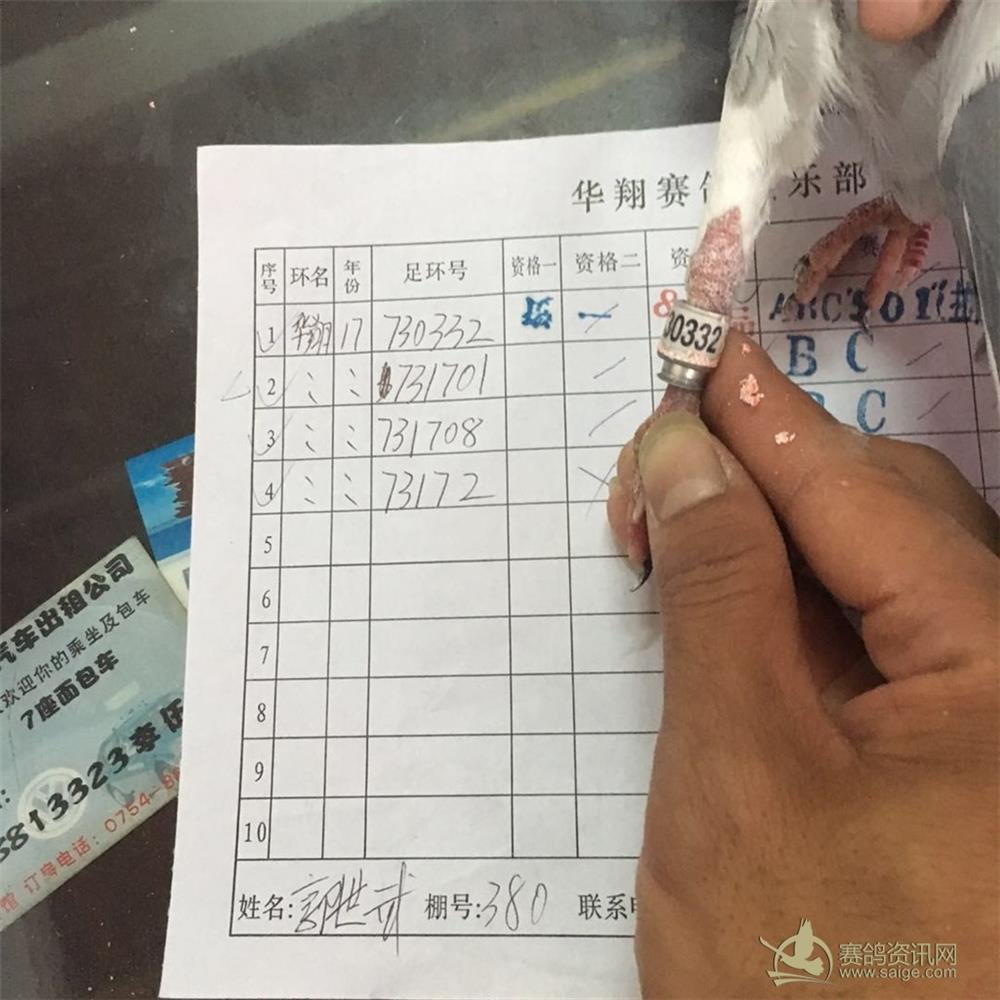 华翔赛
乐部
序号 环名 年份 足环号 资格一 资格二 资
1 华翔 17 730332
2 ⺀ ⺀ 731701 B C
3 ⺀ ⺀ 731708 C
4 ⺀ ⺀ 73172
5
6
7
8
9
10
姓名: 棚号:380 联系
30332
汽车出租公司
欢迎你的乘坐及包车
7座面包车
3813323李
订字电话:0754-8
赛鸽资讯网
www.saige.com